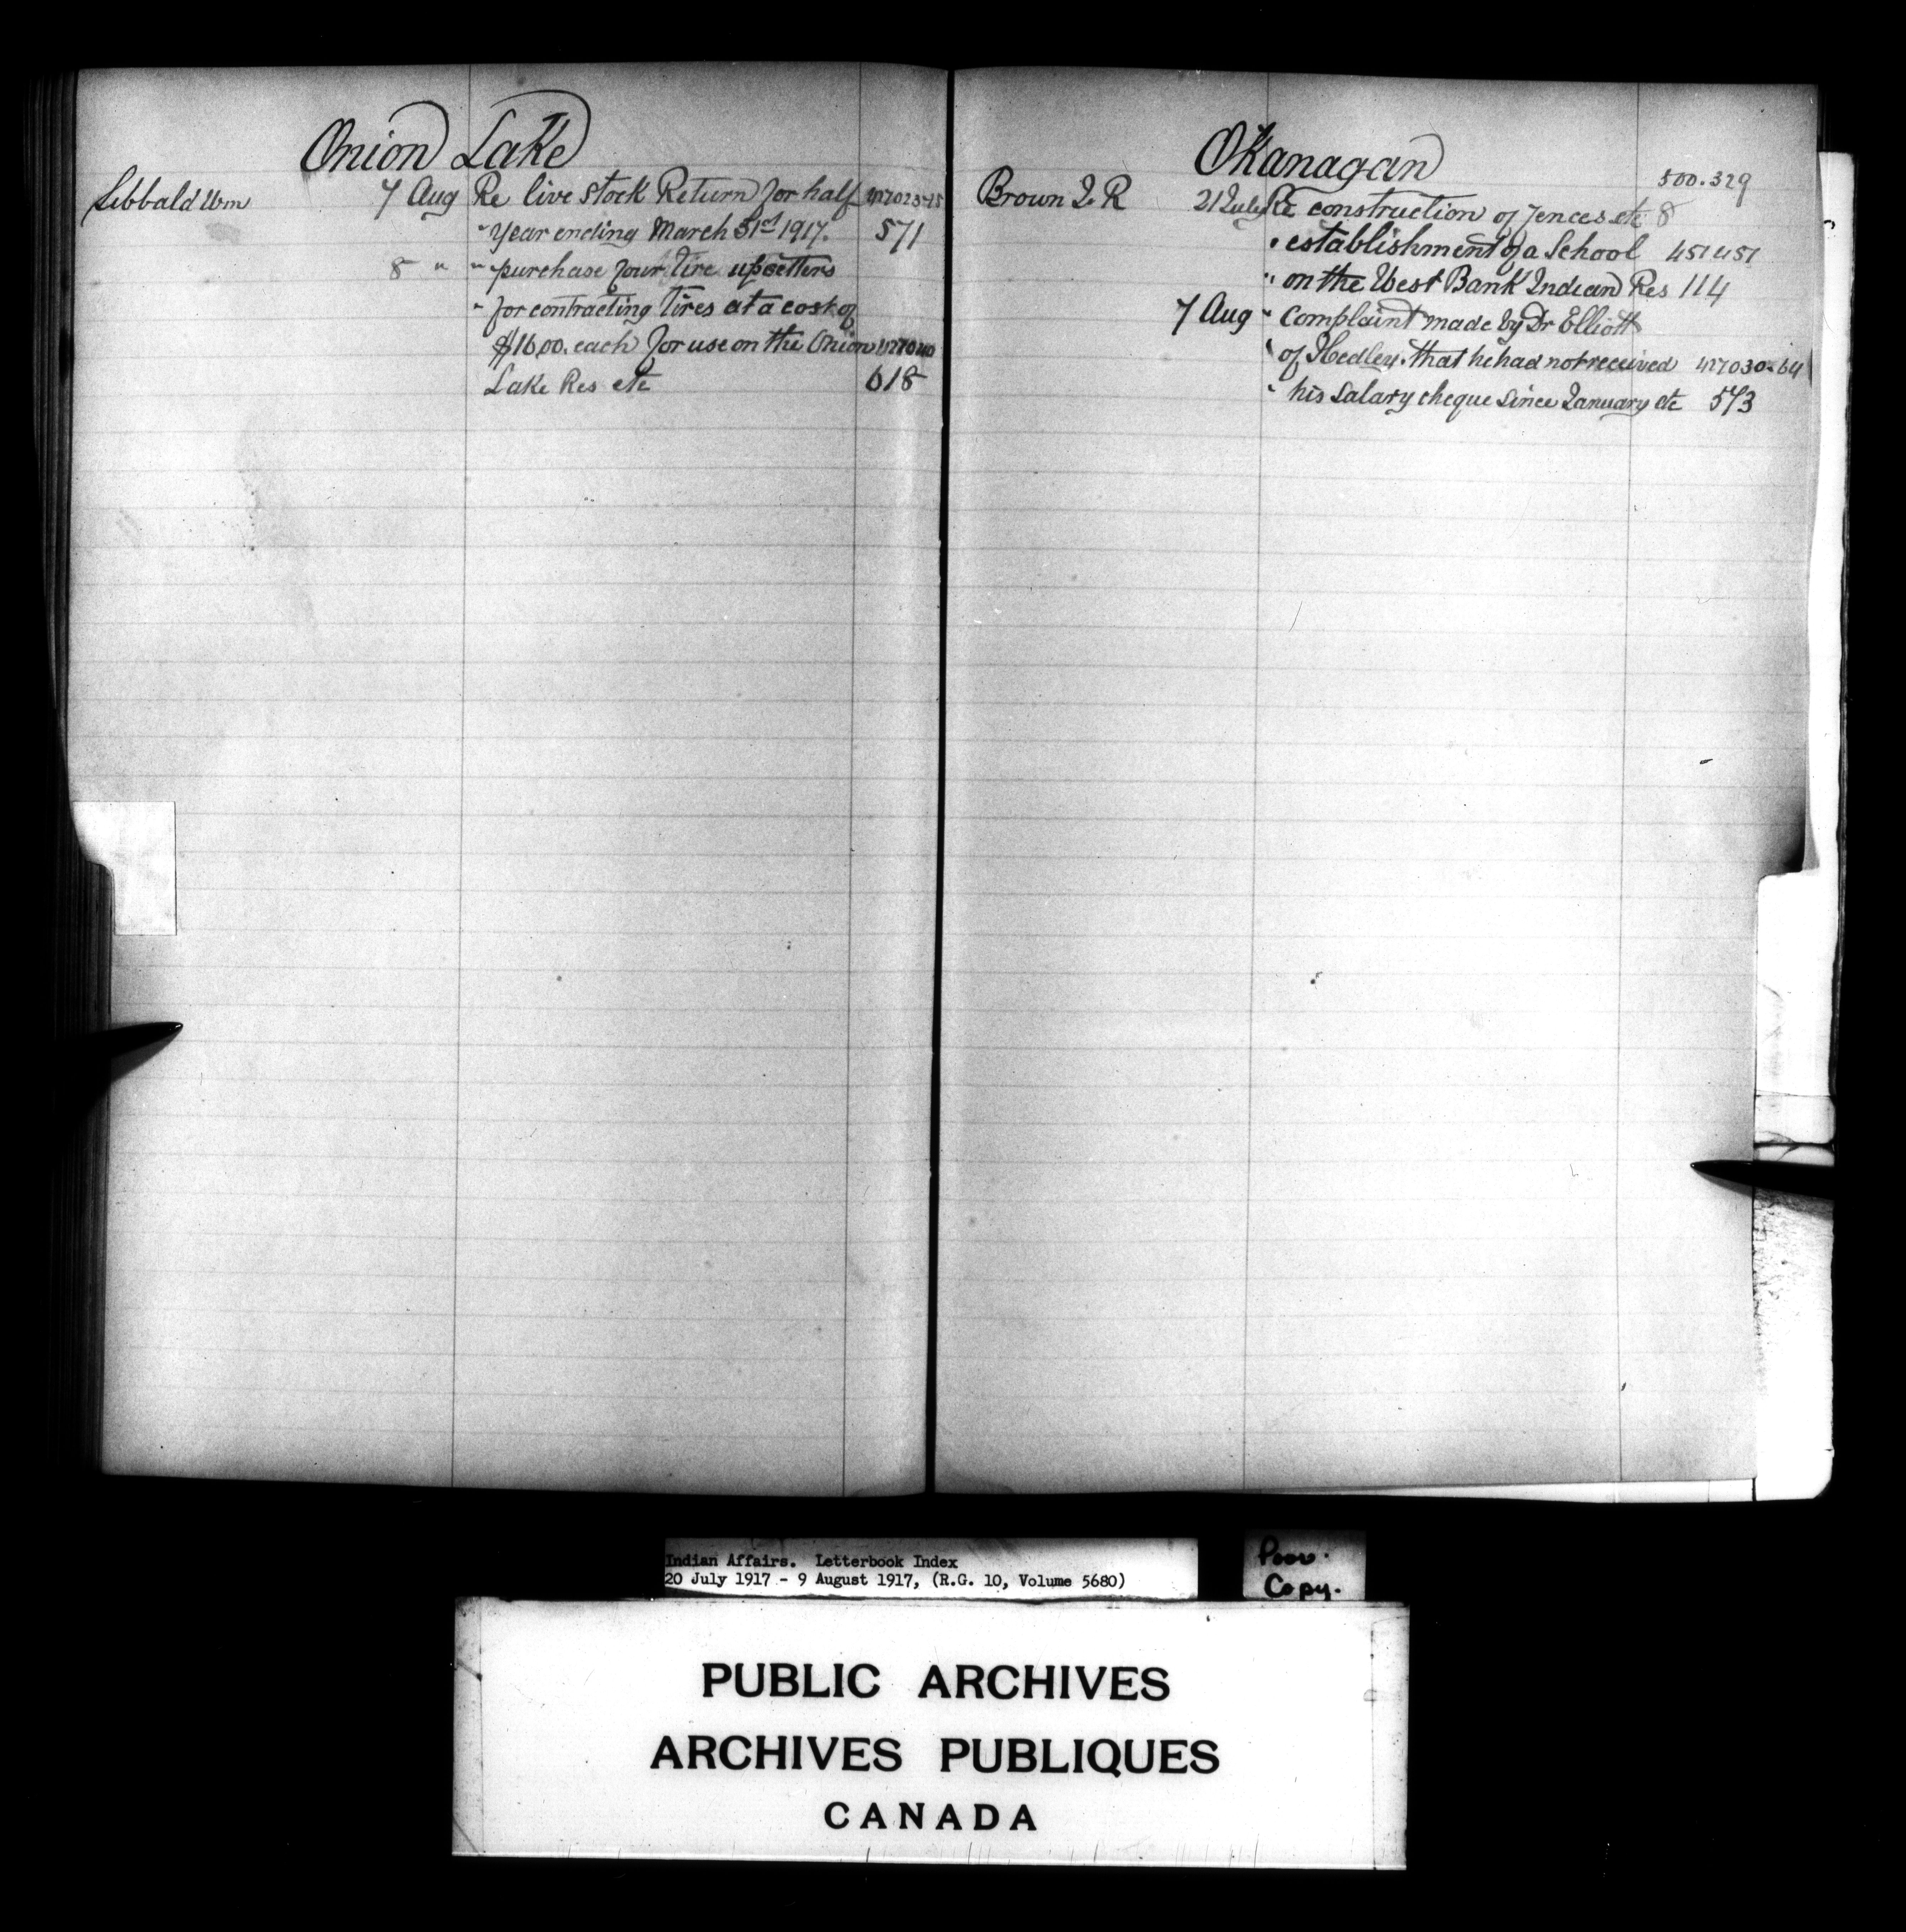 Onion Lake
Sibbald Wm 7 Aug Re live stock Return for half
" year ending March 31st 1917. 571
8 " " purchase four tire upsetters
" for contracting tires at a cost of
$16.00. each for use on the Onion
Lake Res etc 618
Okanagan
500.329
Brown J. R 21 July Re construction of fences etc 8
" establishment of a School 451451
" on the West Bank Indian Res 114
7 Aug " Complaint made by Dr Elliott
" of Hedley. that he had not received 427030-64
" his salary cheque since January etc 573
Indian Affairs. Letterbook Index
20 July 1917 - 9 August 1917, (R.G. 10, Volume 5680)
Poor.
Copy.
PUBLIC ARCHIVES
ARCHIVES PUBLIQUES
CANADA